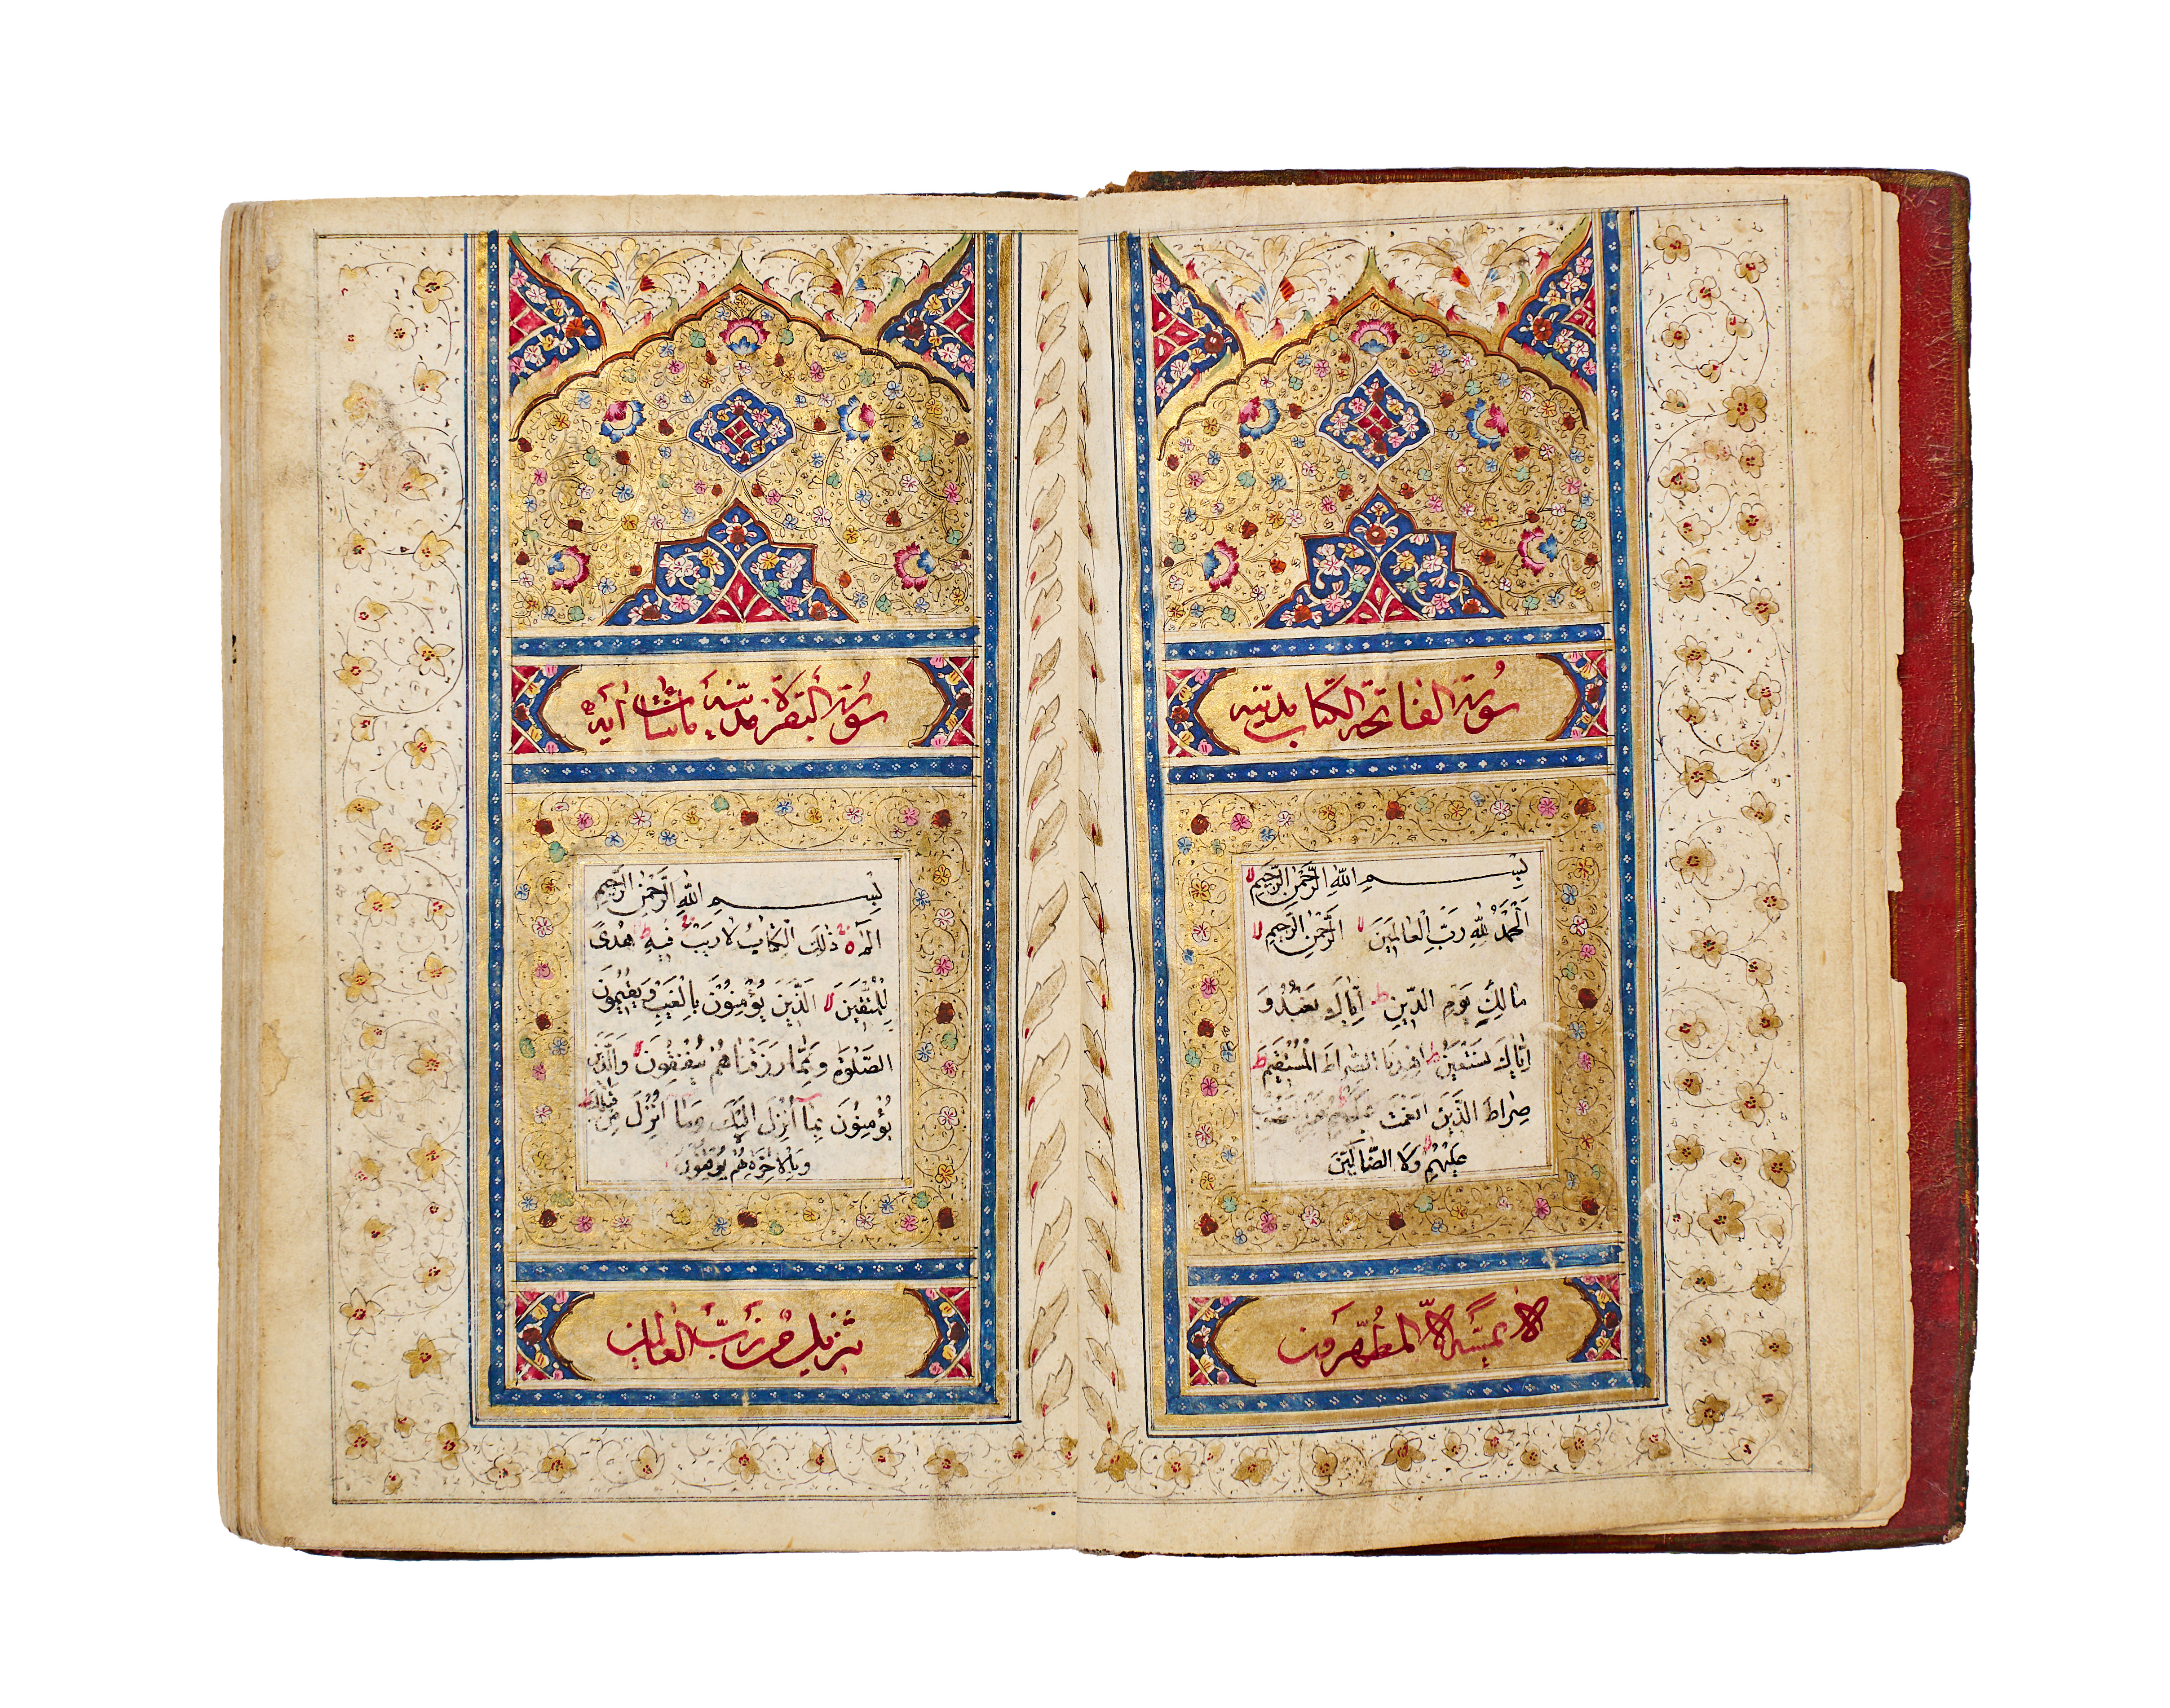 سُورَة الفاتحة الكتاب مدنيّه
بِسْمِ اللّٰهِ الرَّحْمٰنِ الرَّحِيمِ لا
اَلْحَمْدُ لِلّٰهِ رَبِّ الْعالَمينَ لا الرَّحْمٰنِ الرَّحيمِ لا
مالِكِ يَوْمِ الدّينِ ط اِيّاكَ نَعْبُدُ وَ
اِيّاكَ نَسْتَعينُ ط اِهْدِنَا الصِّراطَ الْمُسْتَقيمَ ط
صِراطَ الَّذينَ اَنْعَمْتَ عَلَيْهِمْ غَيْرِ الْمَغْضُوبِ
عَلَيْهِمْ وَلَا الضّالّينَ
لا يَمَسُّهُ اِلّا المُطَهَّرُون
سُورَة البقرة مدنيّة مأتان آية
بِسْمِ اللّٰهِ الرَّحْمٰنِ الرَّحيمِ
الٓمٓ ذٰلِكَ الْكِتابُ لا رَيْبَ فيهِ ط هُدًى
لِلْمُتَّقينَ لا الَّذينَ يُؤْمِنُونَ بِالْغَيْبِ وَيُقيمُونَ
الصَّلٰوةَ وَمِمّا رَزَقْناهُمْ يُنْفِقُونَ لا وَالَّذينَ
يُؤْمِنُونَ بِمآ اُنْزِلَ اِلَيْكَ وَمآ اُنْزِلَ مِنْ قَبْلِكَ ط
وَبِالْاٰخِرَةِ هُمْ يُوقِنُونَ
تنزيل من رَبّ العالمين